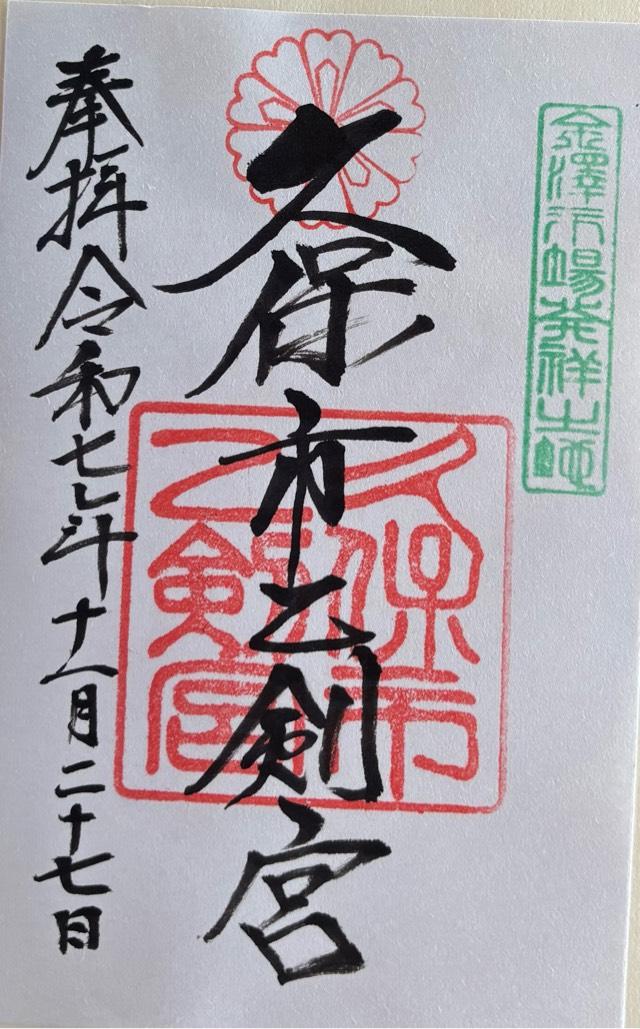 金澤市場発祥之地
久保市乙剣宮
久保市
乙剣宮
奉拝 令和七年十一月二十七日